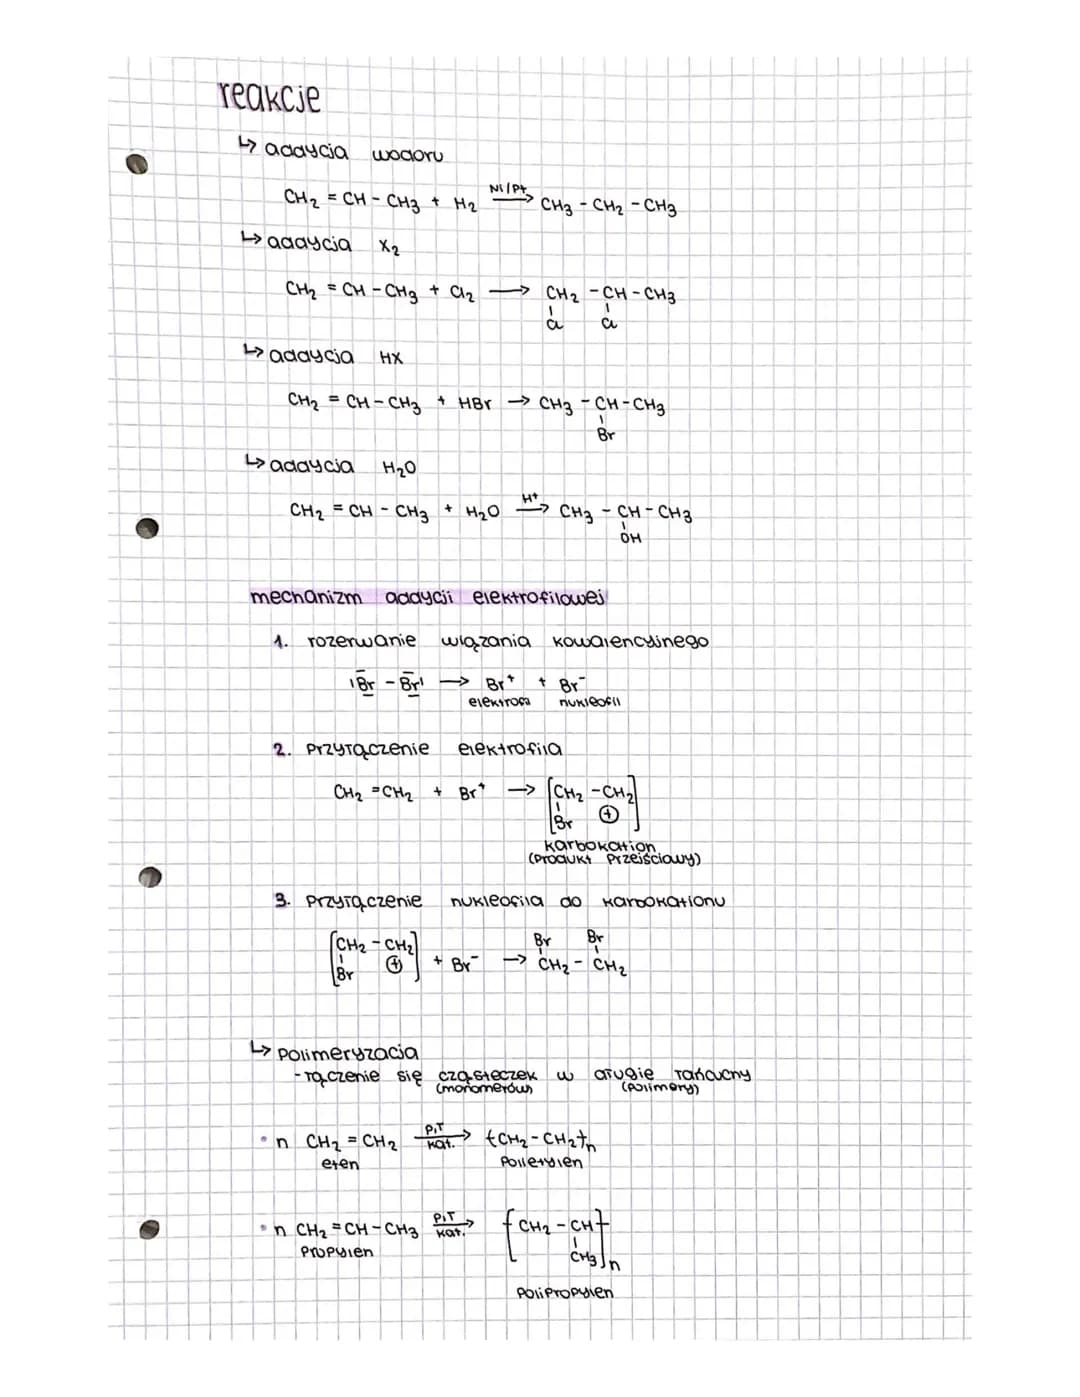 reakcje
↳ addycja wodoru
CH₂ = CH - CH₃ + H₂ Ni/Pt → CH₃ - CH₂ - CH₃
↳ addycja X₂
CH₂ = CH - CH₃ + Cl₂ → CH₂ - CH - CH₃
Cl Cl
↳ addycja HX
CH₂ = CH - CH₃ + HBr → CH₃ - CH - CH₃
Br
↳ addycja H₂O
CH₂ = CH - CH₃ + H₂O H⁺ → CH₃ - CH - CH₃
OH
mechanizm addycji elektrofilowej
1. rozerwanie wiązania kowalencyjnego
|Br - Br| → Br⁺ + Br⁻
elektrofil nukleofil
2. Przyłączenie elektrofila
CH₂ = CH₂ + Br⁺ → [CH₂ - CH₂]
Br ⊕
karbokation
(produkt przejściowy)
3. Przyłączenie nukleofila do karbokationu
Br Br
[CH₂ - CH₂] + Br⁻ → CH₂ - CH₂
Br ⊕
↳ Polimeryzacja
- łączenie się cząsteczek w długie łańcuchy
(monomerów) (polimery)
• n CH₂ = CH₂ p,T kat. → {CH₂ - CH₂}n
eten Polietylen
• n CH₂ = CH - CH₃ p,T kat. → [CH₂ - CH]n
Propylen CH₃
Polipropylen